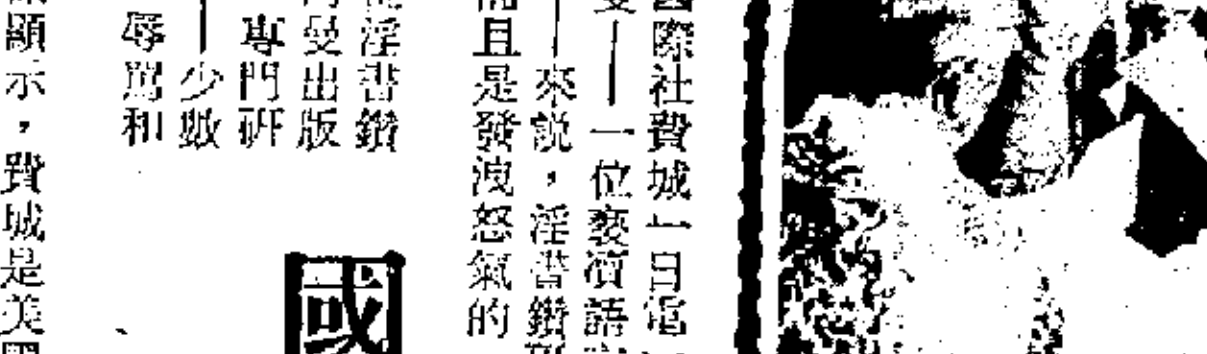 國際社費城一日電
一位褻瀆語
來說，淫書鑽
而且是發洩怒氣的
國
淫書鑽
出版
專門研
少數
辱罵和
顯示，費城是美國